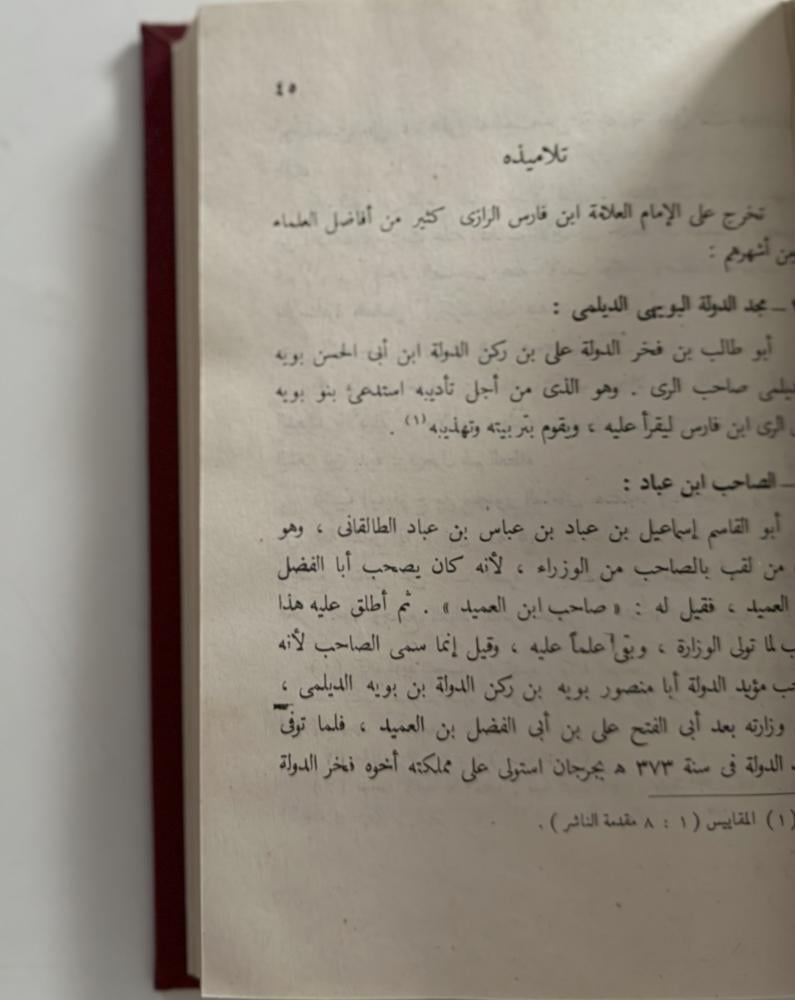 ٤٥
تلاميذه
تخرج على الإمام العلامة ابن فارس الرازى كثير من أفاضل العلماء
من أشهرهم :
ـ مجد الدولة البويهى الديلمى :
أبو طالب بن فخر الدولة على بن ركن الدولة ابن أبى الحسن بويه
صاحب الرى . وهو الذى من أجل تأديبه استدعى بنو بويه
الرى ابن فارس ليقرأ عليه ، ويقوم بتربيته وتهذيبه (١) .
ـ الصاحب ابن عباد :
أبو القاسم إسماعيل بن عباد بن عباس بن عباد الطالقانى ، وهو
من لقب بالصاحب من الوزراء ، لأنه كان يصحب أبا الفضل
العميد ، فقيل له : « صاحب ابن العميد » . ثم أطلق عليه هذا
لما تولى الوزارة ، وبقى علماً عليه ، وقيل إنما سمى الصاحب لأنه
مؤيد الدولة أبا منصور بويه بن ركن الدولة بن بويه الديلمى ،
وزارته بعد أبى الفتح على بن أبى الفضل بن العميد ، فلما توفى
الدولة فى سنة ٣٧٣ ه بجرجان استولى على مملكته أخوه فخر الدولة
(١) المقاييس ( ١ : ٨ مقدمة الناشر ) .